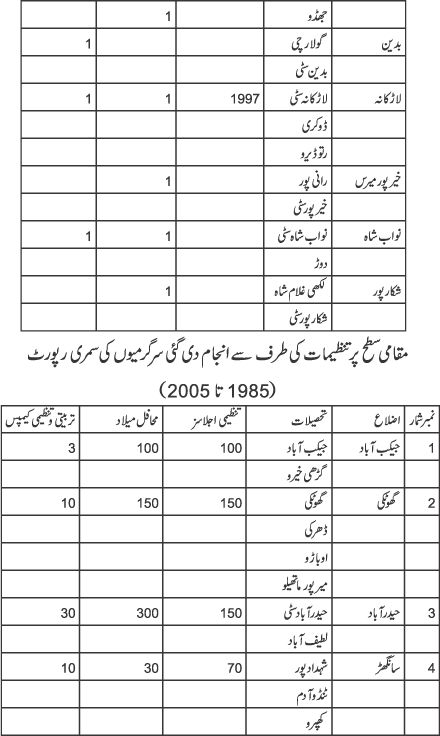 جھڈو 1
بدین گولارچی 1
بدین سٹی
لاڑکانہ لاڑکانہ سٹی 1997 1 1
ڈوکری
رتوڈیرو
خیرپور میرس رانی پور 1
خیرپورسٹی
نواب شاہ نواب شاہ سٹی 1 1
دوڑ
شکارپور لکھی غلام شاہ 1
شکارپورسٹی
مقامی سطح پر تنظیمات کی طرف سے انجام دی گئی سرگرمیوں کی سمری رپورٹ
(1985 تا 2005)
نمبر شمار اضلاع تحصیلات تنظیمی اجلاسز محافل میلاد تربیتی و تنظیمی کیمپس
1 جیکب آباد جیکب آباد 100 100 3
گڑھی خیرو
2 گھوٹکی گھوٹکی 150 150 10
ڈھرکی
اوباڑو
میرپور ماتھیلو
3 حیدرآباد حیدرآباد سٹی 150 300 30
لطیف آباد
4 سانگھڑ شہدادپور 70 30 10
ٹنڈوآدم
کھپرو